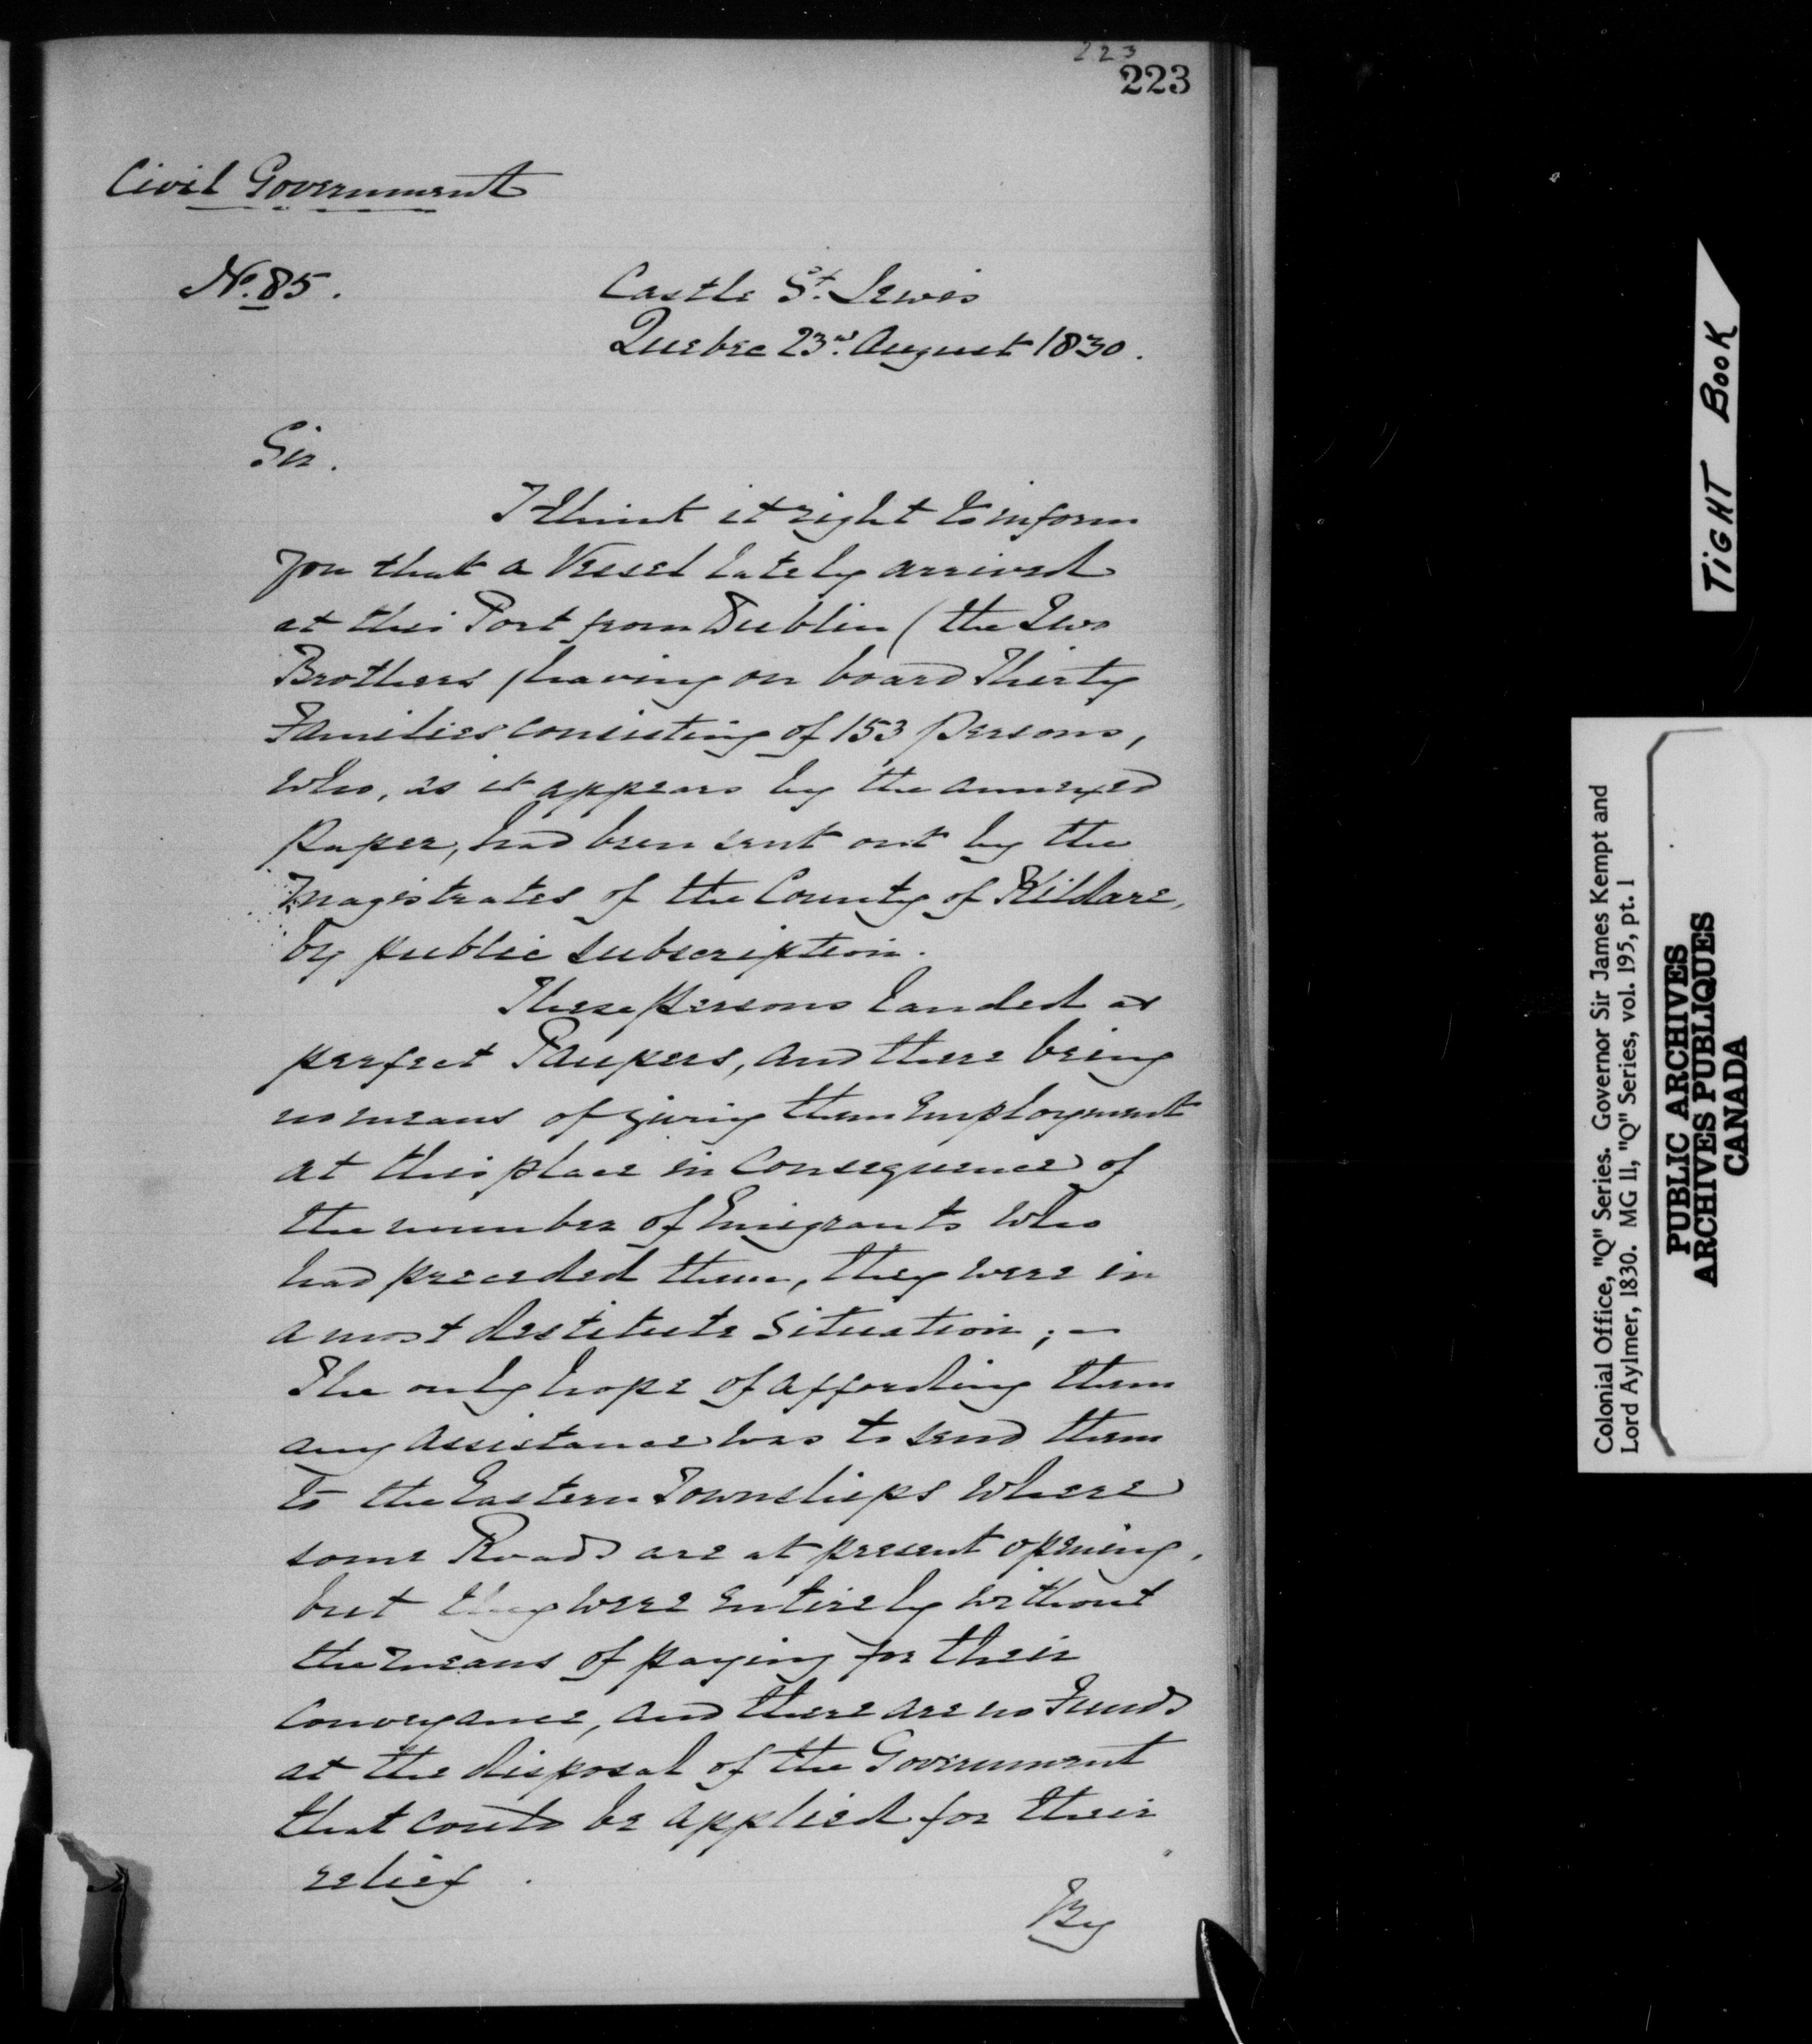 223
223
Civil Government
No. 85.
Castle St. Lewis
Quebec 23rd. August 1830.
Sir.
I think it right to inform
you that a Vessel lately arrived
at this Port from Dublin (the Two
Brothers) having on board Thirty
Families consisting of 153 persons,
who, as it appears by the annexed
paper, had been sent out by the
Magistrates of the County of Kildare,
by public subscription.
These persons landed as
perfect Paupers, and there being
no means of giving them Employment
at this place in consequence of
the number of Emigrants who
had preceded them, they were in
a most destitute situation; —
The only hope of affording them
any assistance was to send them
to the Eastern Townships where
some Roads are at present opening,
but they were entirely without
the means of paying for their
conveyance, and there are no Funds
at the disposal of the Government
that could be applied for their
relief.
By
TIGHT BOOK
Colonial Office, "Q" Series. Governor Sir James Kempt and
Lord Aylmer, 1830. MG 11, "Q" Series, vol. 195, pt. 1
PUBLIC ARCHIVES
ARCHIVES PUBLIQUES
CANADA